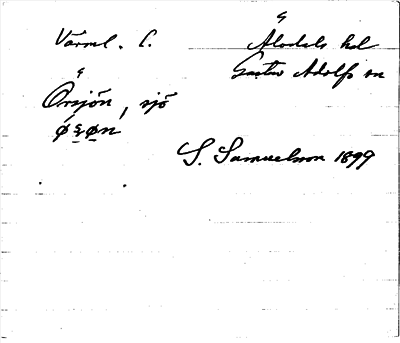 Värml. C.
Älvdals hd
Gustav Adolfs sn
Örsjön, sjö
S. Samuelsson 1899